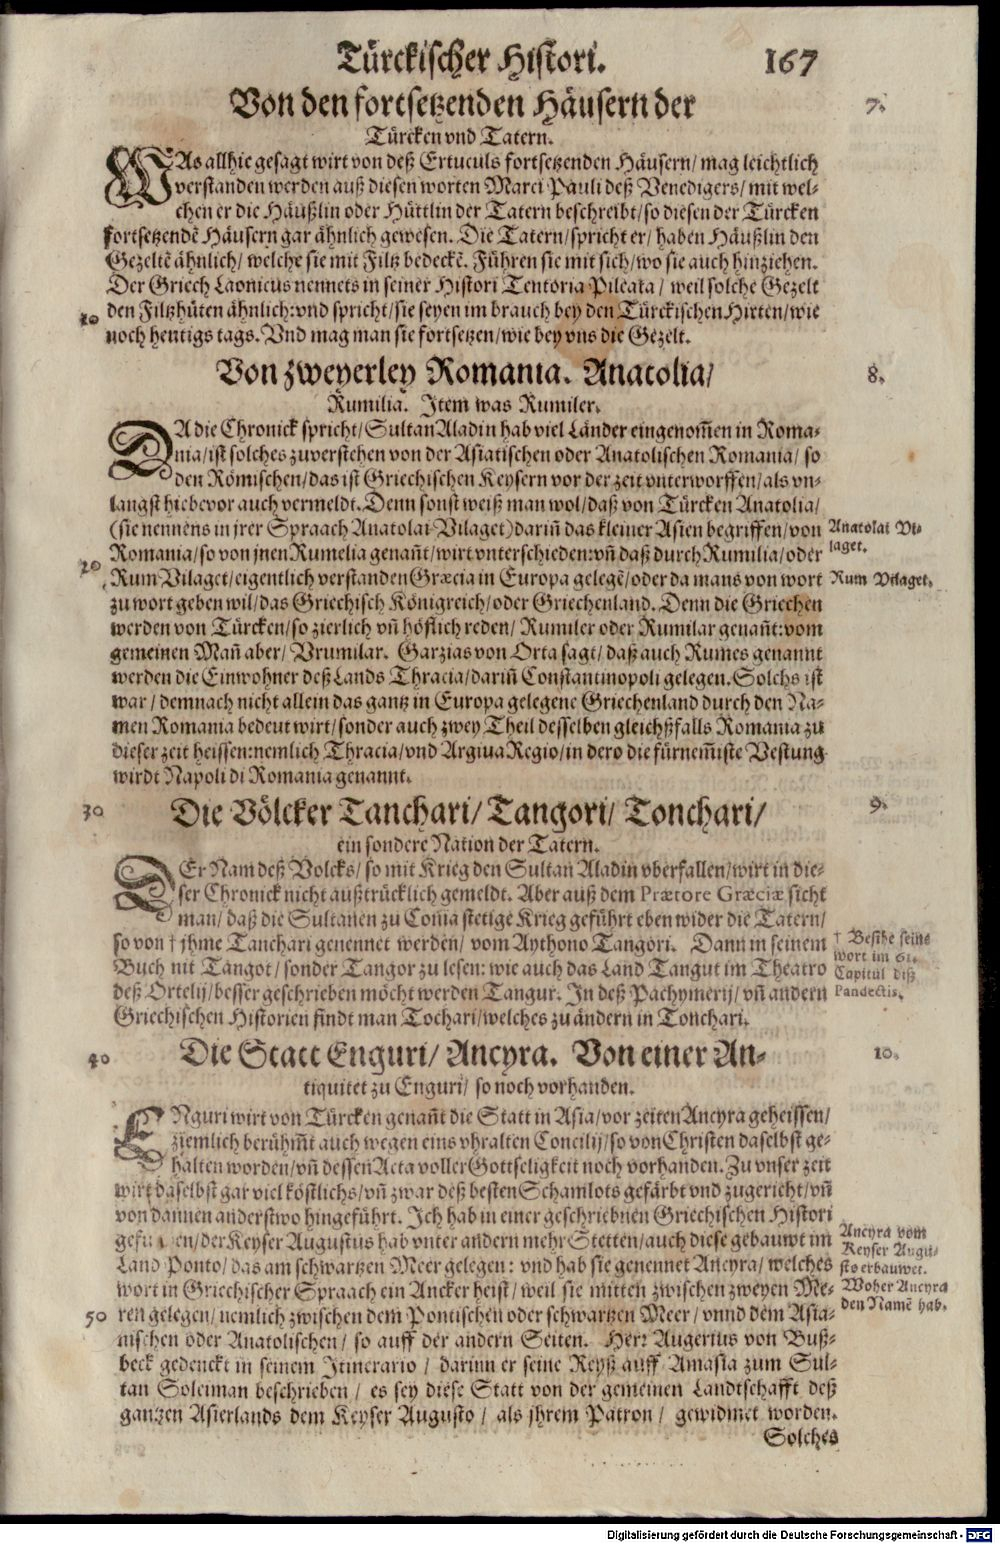 Türckischer Histori. 167
Von den fortsetzenden Häusern der 7.
Türcken vnd Tatern.
WAs allhie gesagt wirt von deß Ertuculs fortsetzenden Häusern/ mag leichtlich
verstanden werden auß diesen worten Marci Pauli deß Venedigers/ mit wel-
chen er die Häußlin oder Hüttlin der Tatern beschreibt/ so diesen der Türcken
fortsetzendē Häusern gar ähnlich gewesen. Die Tatern/ spricht er/ haben Häußlin den
Gezeltē ähnlich/ welche sie mit Filtz bedeckē. Führen sie mit sich/ wo sie auch hinziehen.
Der Griech Laonicus nennets in seiner Histori Tentoria Pileata/ weil solche Gezelt
10 den Filtzhüten ähnlich: vnd spricht/ sie seyen im brauch bey den Türckischen Hirten/ wie
noch heutigs tags. Vnd mag man sie fortsetzen/ wie bey vns die Gezelt.
Von zweyerley Romania. Anatolia/ 8.
Rumilia. Item was Rumiler.
DA die Chronick spricht/ Sultan Aladin hab viel Länder eingenom̄en in Roma-
nia/ ist solches zuverstehen von der Asiatischen oder Anatolischen Romania/ so
den Römischen/ das ist Griechischen Keysern vor der zeit vnterworffen/ als vn-
langst hiebevor auch vermeldt. Denn sonst weiß man wol/ daß von Türcken Anatolia/
(sie nennens in jrer Spraach Anatolai Vilaget) darin̄ das kleiner Asien begriffen/ von
Anatolai Vi-
laget.
Romania/ so von jnen Rumelia genañt/ wirt vnterschieden: vn̄ daß durch Rumilia/ oder
20 Rum Vilaget/ eigentlich verstanden Græcia in Europa gelegē/ oder da mans von wort
Rum Vilaget.
zu wort geben wil/ das Griechisch Königreich/ oder Griechenland. Denn die Griechen
werden von Türcken/ so zierlich vn̄ höflich reden/ Rumiler oder Rumilar genañt: vom
gemeinen Man̄ aber/ Vrumilar. Garzias von Orta sagt/ daß auch Rumes genannt
werden die Einwohner deß Lands Thracia/ darin̄ Constantinopoli gelegen. Solchs ist
war/ demnach nicht allein das gantz in Europa gelegene Griechenland durch den Na-
men Romania bedeut wirt/ sonder auch zwey Theil desselben gleichßfalls Romania zu
dieser zeit heissen: nemlich Thracia/ vnd Argiua Regio/ in dero die fürnem̄iste Vestung
wirdt Napoli di Romania genannt.
30 Die Völcker Tanchari/ Tangori/ Tonchari/ 9.
ein sondere Nation der Tatern.
DEr Nam deß Volcks/ so mit Krieg den Sultan Aladin vberfallen/ wirt in die-
ser Chronick nicht außtrücklich gemeldt. Aber auß dem Prætore Græciæ sicht
man/ daß die Sultanen zu Conia stetige Krieg geführt eben wider die Tatern/
so von † jhme Tanchari genennet werden/ vom Aythono Tangori. Dann in seinem
Buch nit Tangot/ sonder Tangor zu lesen: wie auch das Land Tangut im Theatro
deß Ortelij/ besser geschrieben möcht werden Tangur. In deß Pachymerij/ vn̄ andern
Griechischen Historien findt man Tochari/ welches zu ändern in Tonchari.
† Besihe seins
wort im 61.
Capitul diß
Pandectis.
40 Die Statt Enguri/ Ancyra. Von einer An- 10.
tiquitet zu Enguri/ so noch vorhanden.
ENguri wirt von Türcken genañt die Statt in Asia/ vor zeiten Ancyra geheissen/
ziemlich berühm̄t auch wegen eins vhralten Concilij/ so von Christen daselbst ge-
halten worden/ vn̄ dessen Acta voller Gottseligkeit noch vorhanden. Zu vnser zeit
wirt daselbst gar viel köstlichs/ vn̄ zwar deß besten Schamlots gefärbt vnd zugericht/ vn̄
von dannen anderstwo hingeführt. Ich hab in einer geschriebnen Griechischen Histori
gefunden/ der Keyser Augustus hab vnter andern mehr Stetten/ auch diese gebauwt im
Land Ponto/ das am schwartzen Meer gelegen: vnd hab sie genennet Ancyra/ welches
wort in Griechischer Spraach ein Ancker heist/ weil sie mitten zwischen zweyen Me-
50 ren gelegen/ nemlich zwischen dem Pontischen oder schwartzen Meer/ vnnd dem Asia-
nischen oder Anatolischen/ so auff der andern Seiten. Herr Augerius von Buß-
beck gedenckt in seinem Itinerario/ darinn er seine Reyß auff Amasia zum Sul-
tan Soleiman beschrieben/ es sey diese Statt von der gemeinen Landtschafft deß
gantzen Asierlands dem Keyser Augusto/ als jhrem Patron/ gewidmet worden.
Ancyra vom
Keyser Augu-
sto erbauwet.
Woher Ancyra
den Namē hab.
Solches
Digitalisierung gefördert durch die Deutsche Forschungsgemeinschaft - DFG